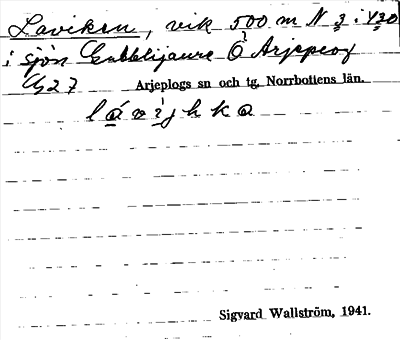 Laviken, vik 500 m N 3 i 430
i sjön Gubblijaure Ö Arjeplog
Arjeplogs sn och tg, Norrbottens län.
Sigvard Wallström, 1941.